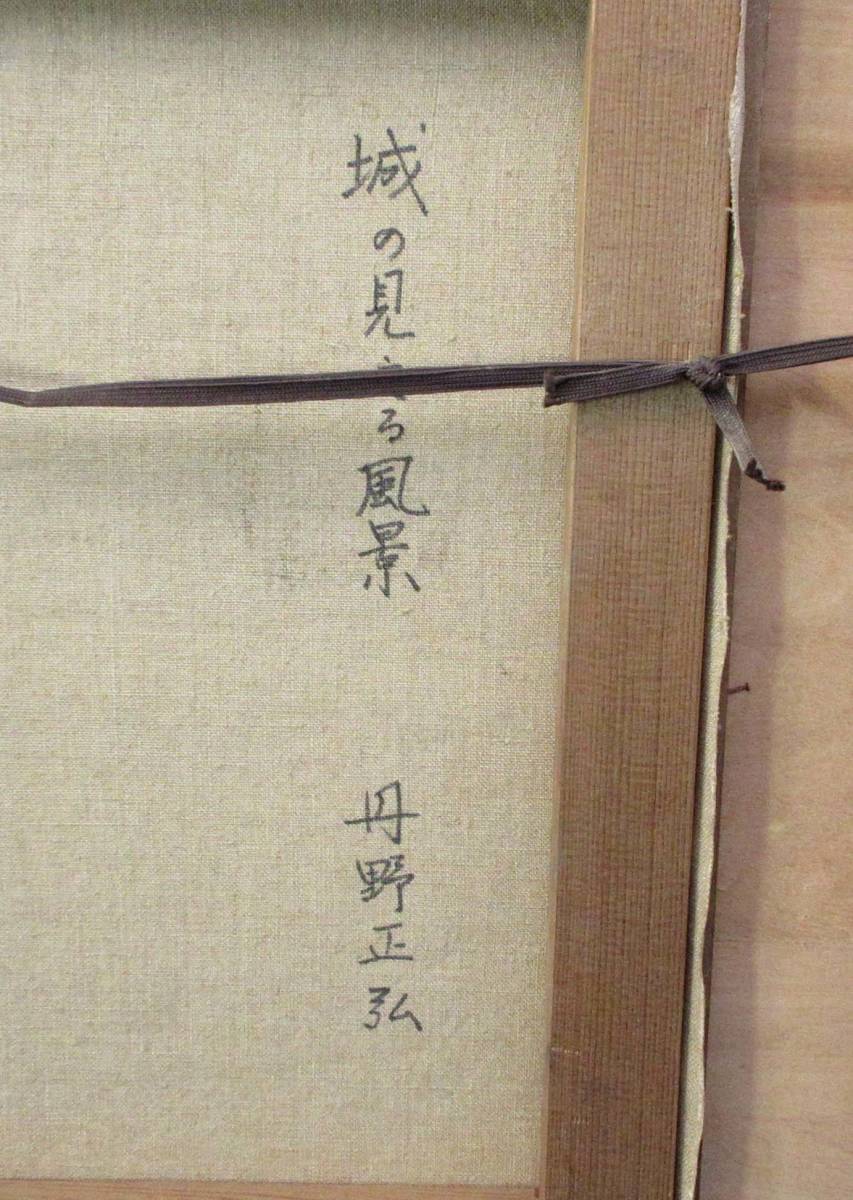 城の見える風景
丹野正弘